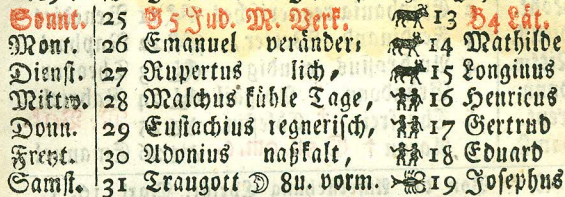 Sonnt. 25 G 5 Jud. M. Verk. 13 B4 Lät.
Mont. 26 Emanuel veränder⸗ 14 Mathilde
Dienſt. 27 Rupertus lich, 15 Longinus
Mittw. 28 Malchus kühle Tage, 16 Henricus
Donn. 29 Euſtachius regneriſch, 17 Gertrud
Freyt. 30 Adonius naßkalt, 18 Eduard
Samſt. 31 Traugott ☽ 8u. vorm. 19 Joſephus